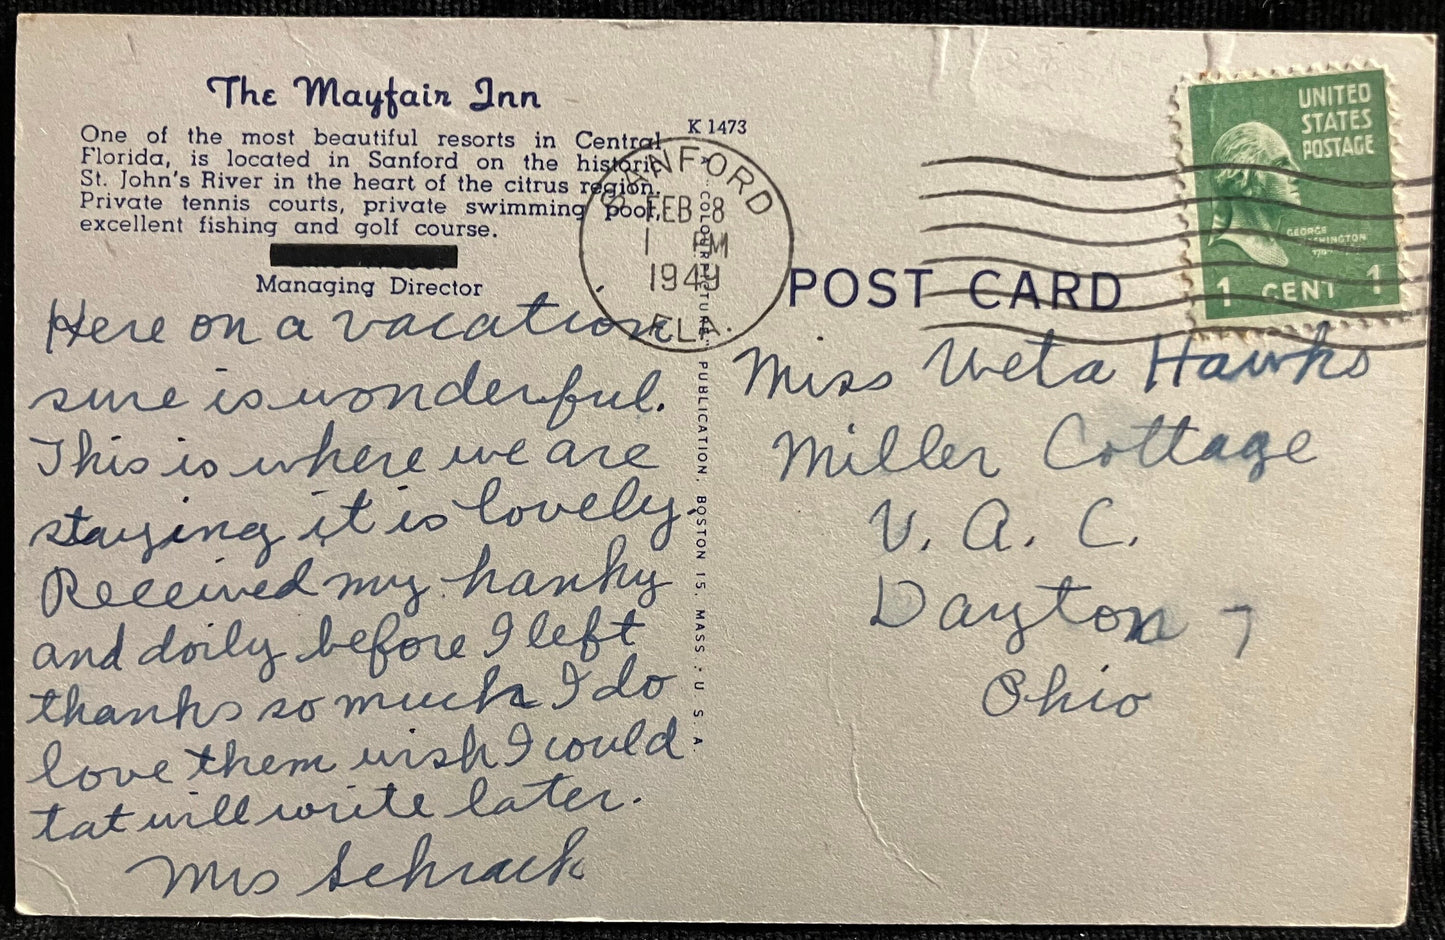 The Mayfair Inn
One of the most beautiful resorts in Central
Florida, is located in Sanford on the historic
St. John's River in the heart of the citrus region.
Private tennis courts, private swimming pool,
excellent fishing and golf course.
Managing Director
Here on a vacation
sure is wonderful.
This is where we are
staying it is lovely.
Received my hanky
and doily before I left
thanks so much I do
love them wish I could
tat will write later.
Mrs Schrack
K 1473
SANFORD
FEB 8
1 PM
1949
FLA.
"COLOURPICTURE" PUBLICATION, BOSTON 15, MASS., U.S.A.
POST CARD
UNITED
STATES
POSTAGE
GEORGE
WASHINGTON
1 CENT 1
Miss Weta Hawks
Miller Cottage
V. A. C.
Dayton 7
Ohio